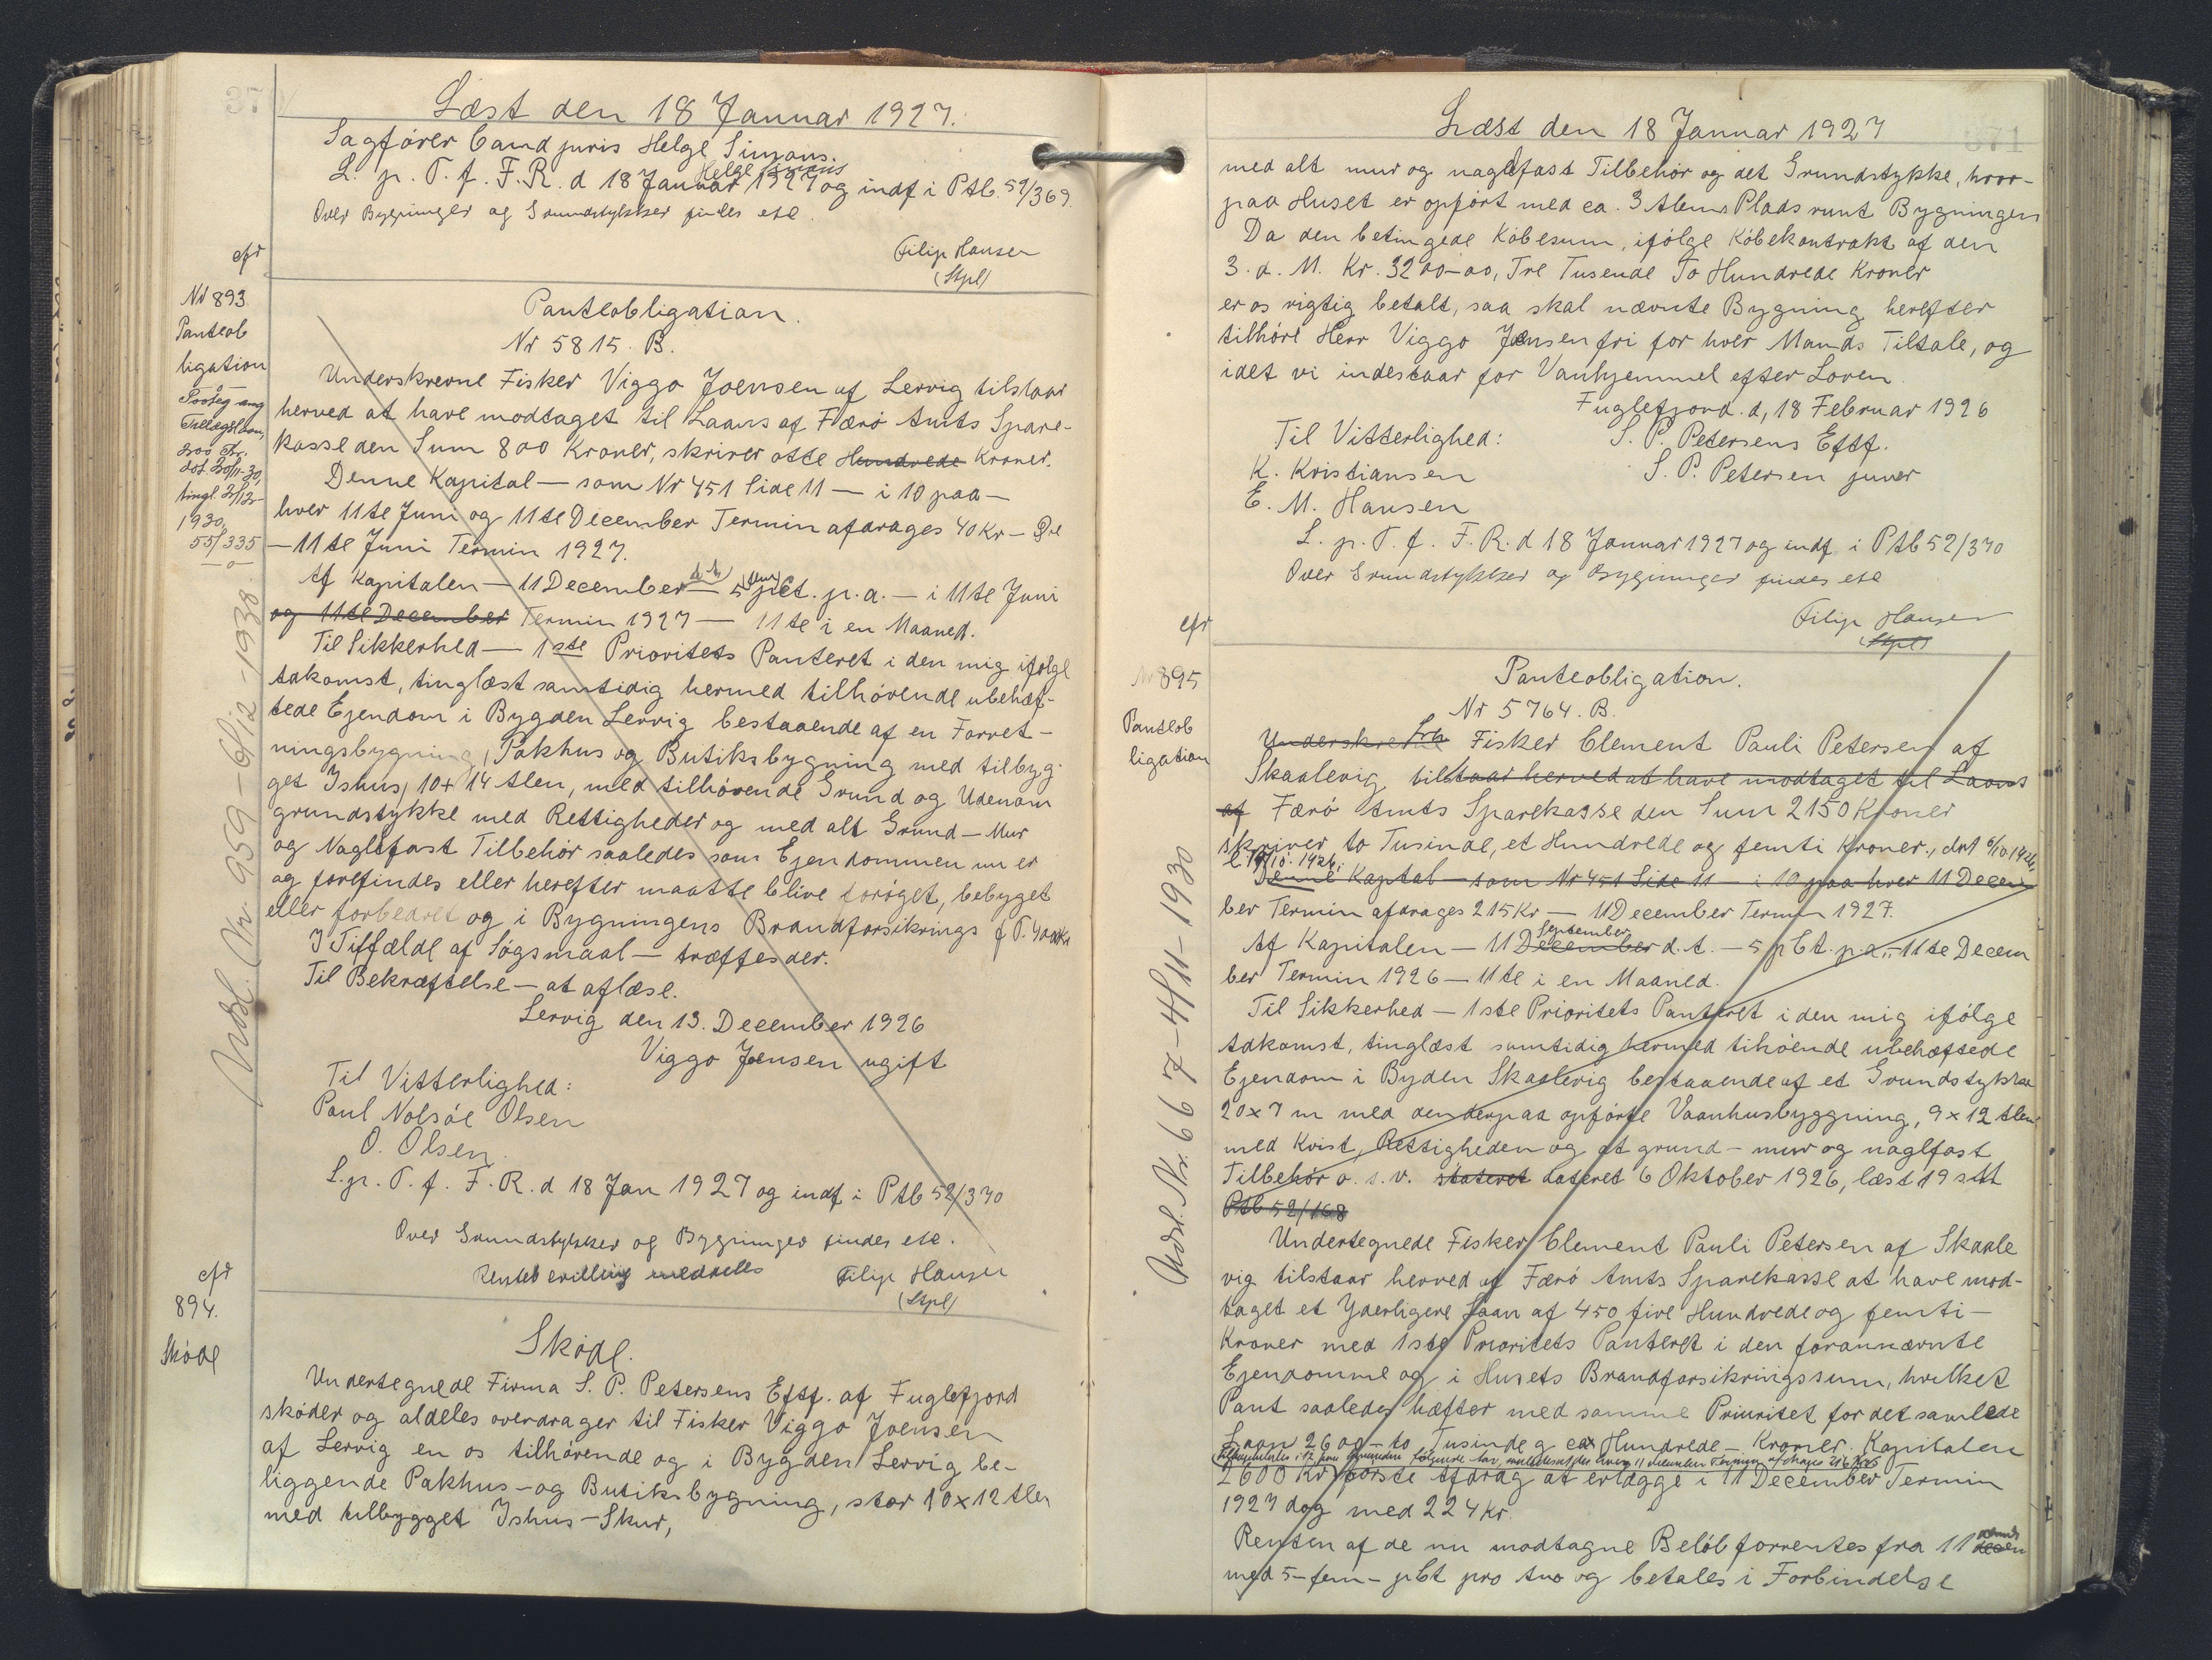 37
Læst den 18 Januar 1927.
Sagförer Cand juris Helge Simans.
Helge
L. p. T. f. F. R. d 18 Januar 1927 og indf i Ptb. 52/369.
Over Bygninger og Grundstykker findes ete.
Filip Hansen
(Stpl)
cfr
Nr 893.
Panteob
ligation
-o-
Paateg ang
Tillægslaan,
200 Kr.
dat. 20/11-30,
tingl. 2/12-
1930,
55/335
-o-
Panteobligation.
Nr 5815. B.
Underskrevne Fisker Viggo Joensen af Lervig tilstaar
herved at have modtaget til Laans af Færö Amts Spare-
kasse den Sum 800 Kroner, skriver otte Hundrede Kroner.
Denne Kapital — som Nr 451 Side 11 — i 10 paa —
hver 11te Juni og 11te December Termin afdrages 40 Kr —
— 11te Juni Termin 1927.
Af Kapitalen — 11 December d. A. — 5 fem pCt. p. a. — i 11te Juni
og 11te December Termin 1927 — 11te i en Maaned.
Til Sikkerhed — 1ste Prioritets Panteret i den mig ifølge
Adkomst, tinglæst samtidig hermed tilhörende ubehæf-
tede Ejendom i Bygden Lervig bestaaende af en Forret-
ningsbygning, Pakhus og Butiksbygning med tilbyg-
get Ishus, 10 x 14 Alen, med tilhörende Grund og Udenom
grundstykke med Rettigheder og med alt Grund — Mur
og Naglefast Tilbehör saaledes som Ejendommen nu er
og forefindes eller herefter maatte blive foröget, bebygget
eller forbedret og i Bygningens Brandforsikrings f T. 4000 Kr
I Tilfælde af Sögsmaal — træffes der.
Til Bekræftelse — at aflæse.
Lervig den 13. December 1926
Viggo Joensen ugift
Til Vitterlighed:
Paul Nolsöe Olsen
O. Olsen.
L. p. T. f. F. R. d 18 Jan 1927 og indf i Ptb 52/370
Over Grundstykker og Bygninger findes ete.
Rentebevilling meddeles
Filip Hansen
(Stpl)
Udsl. Nr. 959 - 6/12 - 1938
cfr
894.
Sköde
Sköde.
Undertegnede Firma S. P. Petersens Eftf. af Fuglefjord
sköder og aldeles overdrager til Fisker Viggo Joensen
af Lervig en os tilhörende og i Bygden Lervig be-
liggende Pakhus- og Butiksbygning, stor 10 x 12 Alen
med tilbygget Ishus - Skur,
371
Læst den 18 Januar 1927
med alt mur og naglefast Tilbehör og det Grundstykke, hvor-
paa Huset er opfört med ca. 3 Alens Plads runt Bygningen
Da den betingede Köbesum, ifölge Köbekontrakt af den
3. d. M. Kr. 3200-00, Tre Tusende To Hundrede Kroner
er os rigtig betalt, saa skal nævnte Bygning herefter
tilhöre Herr Viggo Joensen fri for hver Mands Tiltale, og
idet vi indestaar for Vanhjemmel efter Loven.
Fuglefjord. d, 18 Februar 1926
Til Vitterlighed:
S. P. Petersens Eftf.
K. Kristiansen
S. P. Petersen juner
E. M. Hansen
L. p. T. f. F. R. d 18 Januar 1927 og indf i Ptb 52/370
Over Grundstykker og Bygninger findes ete
Filip Hansen
(Stpl)
cfr
Nr 895
Panteob
ligation
Panteobligation.
Nr 5764. B.
Underskrevne Fisker Clement Pauli Petersen af
Skaalevig tilstaar herved at have modtaget til Laans
af Færö Amts Sparekasse den Sum 2150 Kroner
skriver to Tusinde, et Hundrede og femti Kroner, dat 6/10 1926,
l. 19/10. 1926.
Denne Kaptal — som Nr 451 Side 11 — i 10 paa hver 11 Decem
ber Termin afdrages 215 Kr — 11 December Termin 1927.
September
Af Kapitalen — 11 December d. A. — 5 pCt. p.a. — 11te Decem
ber Termin 1926 — 11te i en Maaned.
Til Sikkerhed — 1ste Prioritets Panteret i den mig ifölge
Adkomst, tinglæst samtidig hermed tilhoende ubehæftede
Ejendom i Byden Skaalevig bestaaende af et Grundstykke
20 x 7 m med den derpaa opförte Vaanhusbyggning, 9 x 12 Alen
med Kvist, Rettigheden og at grund - mur og naglfast
Tilbehör o. s. v. stateret dateret 6 Oktober 1926, læst 19 sM
Ptb 52/168
Undertegnede Fisker Clement Pauli Petersen af Skaale
vig tilstaar herved af Færö Amts Sparekasse at have mod-
taget et Yderligere Laan af 450 fire Hundrede og femti —
Kroner med 1ste Prioritets Panteret i den forannævnte
Ejendomme og i Husets Brandforsikringssum, hvilket
Pant saaledes hæfter med samme Prioritet for det samlede
Laan 2600 - to Tusinde g Hundrede - Kroner. Kapitalen
2600 Kr förste Afdrag at erlægge i 11 December Termin
1927 dog med 224 Kr.
Renten af de nu modtagne Belöb forrentes fra 11
med 5 - fem - pCt pro Ano og betales i Forbindelse
Udsl. Nr. 667 - 4/11 - 1930